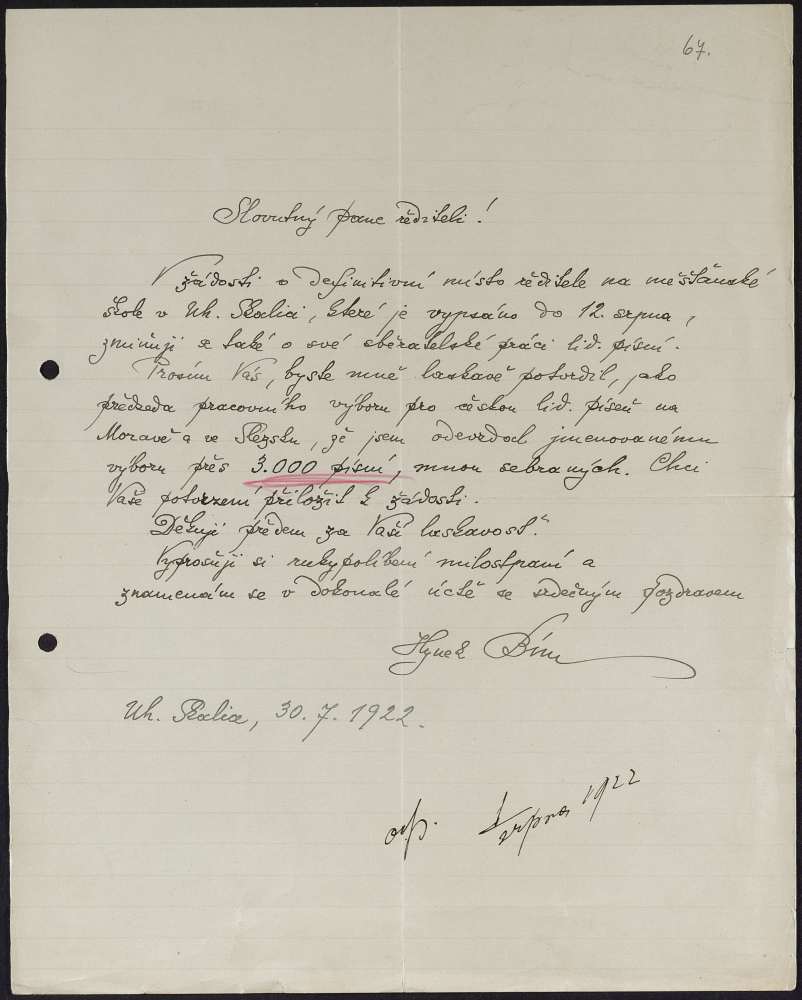 67.
Slovutný pane řediteli!
V žádosti o definitivní místo ředitele na měšťanské
škole v Uh. Skalici, které je vypsáno do 12. srpna,
zmiňuji se také o své sběratelské práci lid. písní.
Prosím Vás, byste mně laskavě potvrdil, jako
předseda pracovního výboru pro českou lid. píseň na
Moravě a ve Slezsku, že jsem odevzdal jmenovanému
výboru přes 3.000 písní, mnou sebraných. Chci
Vaše potvrzení přiložit k žádosti.
Děkuji předem za Vaši laskavost.
Vyprošuji si rukypolíbení milostpaní a
znamenám se v dokonalé úctě se srdečným pozdravem
Hynek Bím
Uh. Skalica, 30. 7. 1922.
odp. srpna 1922